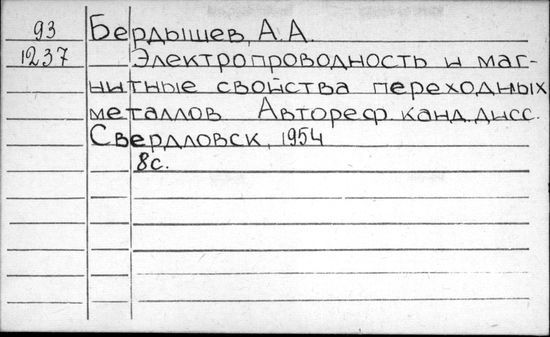 93 Бердышев, А.А.
1237 Электропроводность и маг-
нитные свойства переходных
металлов Автореф. канд. дисс.
Свердловск, 1954
8с.